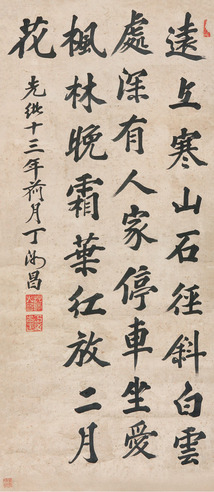 遠上寒山石徑斜白雲
處深有人家停車坐愛
楓林晚霜葉紅於二月
花
光緒十三年荷月丁汝昌